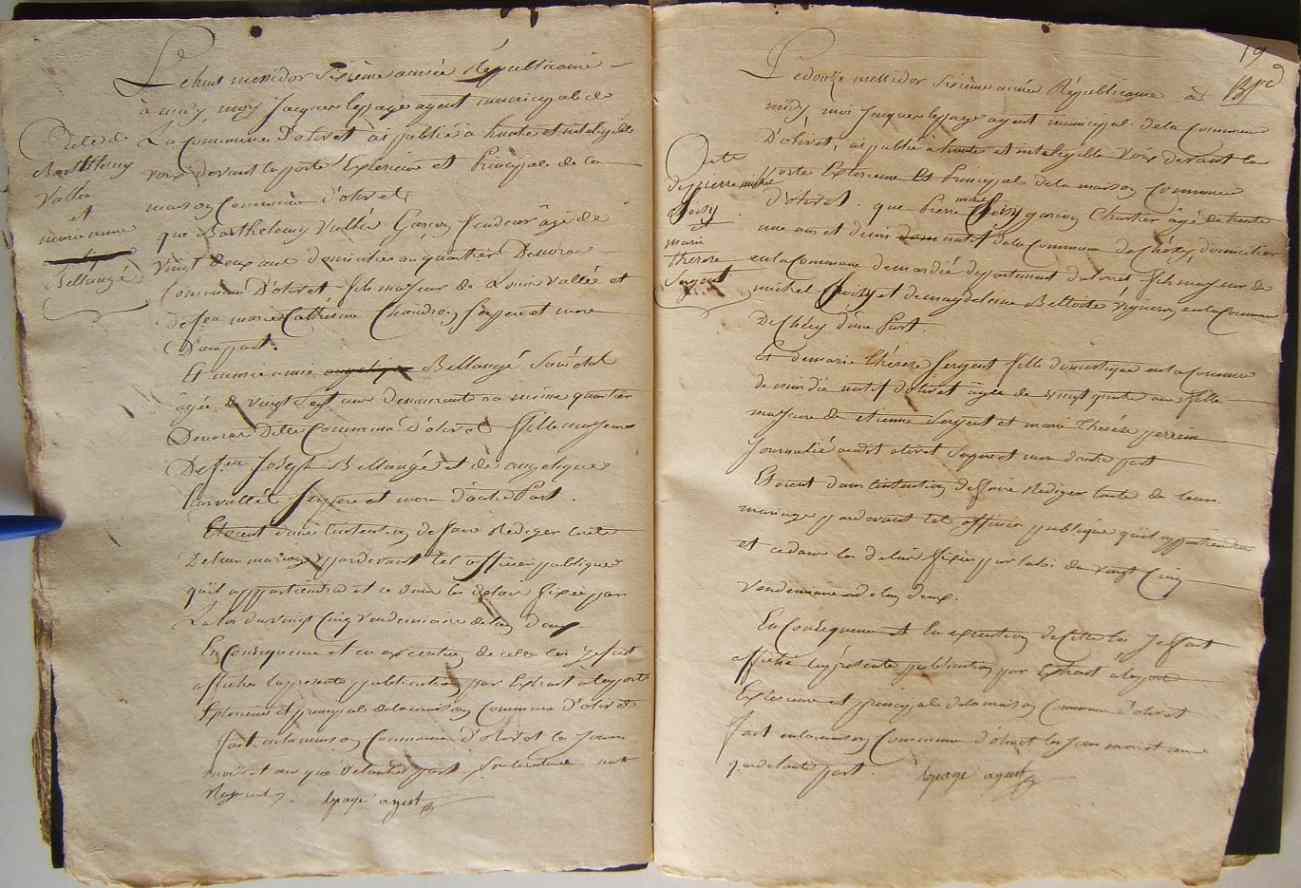 Le huit messidor sixième année Républicaine
à midy, moy Jacques lepage agent municipal de
La Commune d'olivet ai publié à haute et inteligible
voix devant la porte Exterieure et Principal de la
maison Commune d'olivet
que Barthelemy Vallée Garçon
vingt deux ans domicilié au quartier
Commune D'olivet fils majeur de Vallée et
de feu marie Catherine ses père et mere
D'une part.
Et marie anne Bellangé
agée de vingt sept ans demeurant au même quartier
Commune d'olivet fille majeure
De feu Joseph Bellangé et de angelique
Larvallée ses père et mere d'autre Part.
Etoient dans lintention de faire Rediger lacte
De leur mariage pardevant tel officier publique
quil appartiendra et ce dans les delais fixés par
La loi du vingt Cinq vendemiaire de lan deux
En Consequence et en execution de cette loi J'ai fait
afficher la presente publication par Extrait a la porte
Exterieure et principal de la maison Commune D'olivet
fait en la maison Commune d'olivet les Jour
mois et an que dautre part
lepage agent
Barthelemy
Vallée
et
marie anne
Bellangé
19
Le douze messidor sixième année Républicaine à
midy moi Jacques lepage agent municipal de la Commune
D'olivet, ai publié a haute et inteligible voix devant la
porte Exterieure Et Principale de la maison Commune
d'olivet. que Pierre michel Choisy garçon Chartier âgé de trente
une ans et demi natif de la Commune De Chécy, domicilié
en la Commune de mardié departement du loiret fils majeur de
michel Choisy et de magdelenne Vigneron en la Commune
De Chécy d'une Part.
Et de marie thérèse Sergent fille domestique en la Commune
de mardié natif d'olivet âgée de vingt quatre ans fille
majeure de etienne Sergent et marie thérèse perrein
Journalié audit olivet ses pere et mere d'autre part
Etoient dans lintention de faire Rediger lacte de leur
mariage pardevant tel officier publique quil appartiendra
et ce dans les delais fixés par la loi du vingt Cinq
vendemiaire de lan deux.
En Consequence et En execution de Cette loi J'ai fait
afficher la présente publication par Extrait a la porte
Exterieure et principale de la maison Commune d'olivet
fait en la maison Commune d'olivet les Jour mois et an
que dautre part. lepage agent
de pierre michel
Choisy
et
marie
therese
Sergent